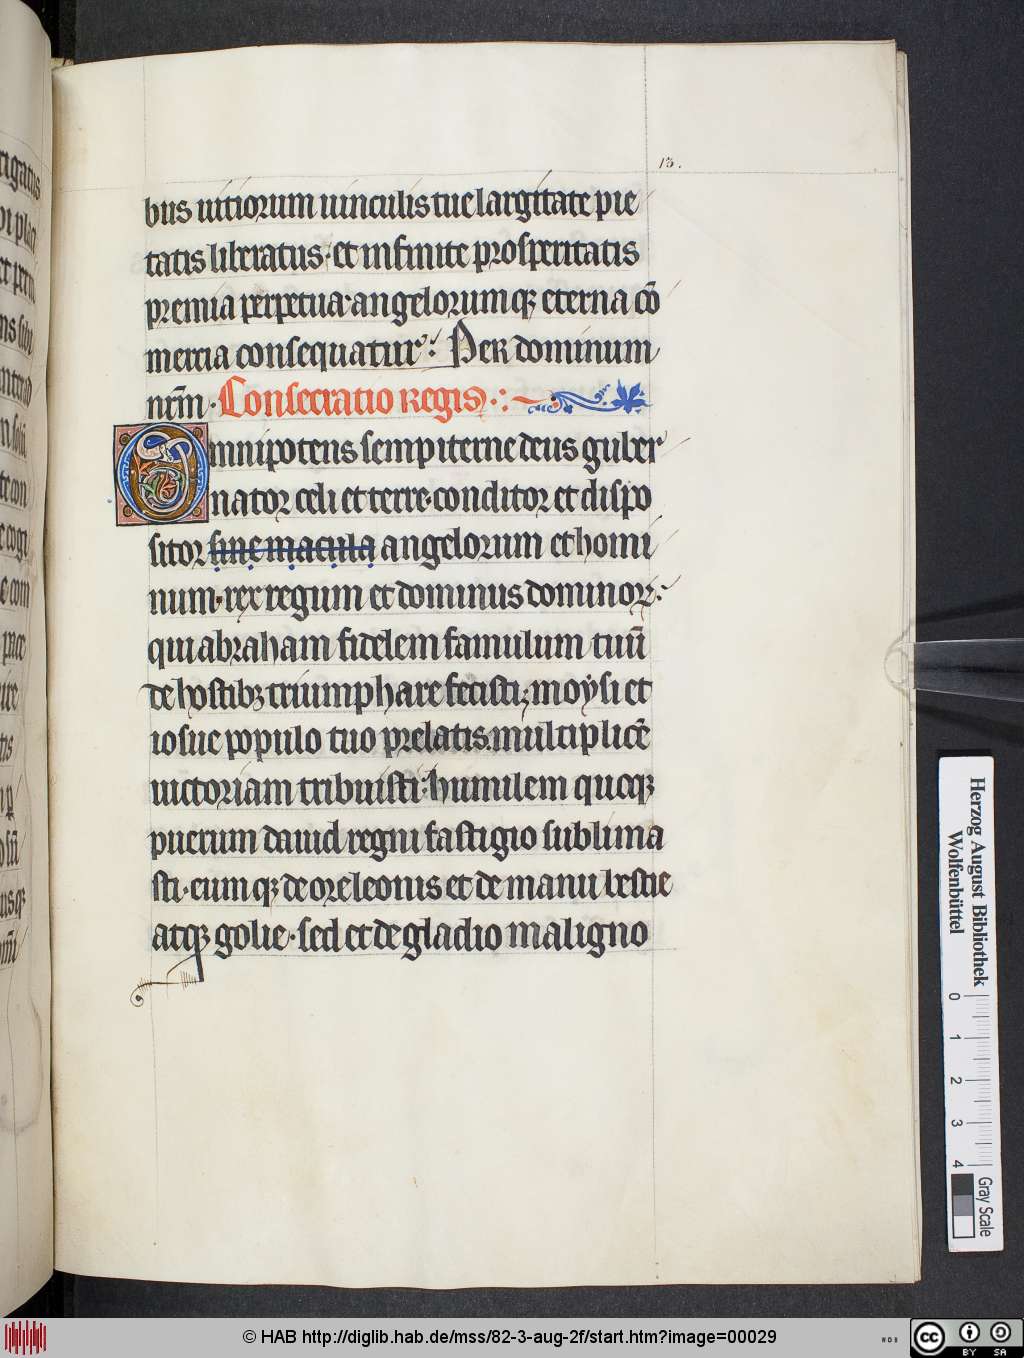 13.
bus uitiorum uinculis tue largitate pie
tatis liberatus· et infinite prosperitatis
premia perpetua· angelorumqꝫ eterna cō
mercia consequatur: Per dominum
nr̄m· Consecratio regis
Omnipotens sempiterne deus guber
nator celi et terre· conditor et dispo
sitor sine macula angelorum et homi
num· rex regum et dominus dominoꝝ:
qui abraham fidelem famulum tuū
de hostibꝫ triumphare fecisti; moysi et
iosue populo tuo prelatis· multiplicē
uictoriam tribuisti: humilem quoqꝫ
puerum dauid regni fastigio sublima
sti· eumqꝫ de ore leonis et de manu bestie
atqꝫ golie· sed et de gladio maligno
Herzog August Bibliothek
Wolfenbüttel
0 1 2 3 4
Gray Scale
© HAB http://diglib.hab.de/mss/82-3-aug-2f/start.htm?image=00029
WDB
CC BY SA